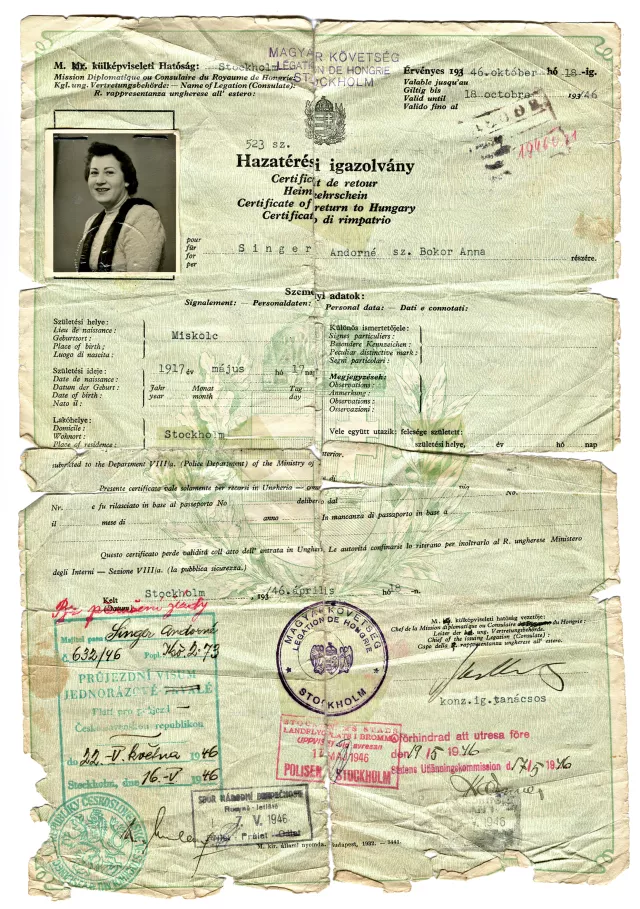 M. kir. külképviseleti Hatóság: Stockholm
Mission Diplomatique ou Consulaire du Royaume de Hongrie:
Kgl. ung. Vertretungsbehörde: — Name of Legation (Consulate):
R. rappresentanza ungherese all' estero:
MAGYAR KÖVETSÉG
LEGATION DE HONGRIE
STOCKHOLM
Érvényes 193 46.október hó 18 -ig.
Valable jusqu'au
Giltig bis
Valid until 18 octobre 193/46
Valido fino al
523 sz.
Hazatérési igazolvány
Certificat de retour
Heimkehrschein
Certificate of return to Hungary
Certificato di rimpatrio
pour
für
for
per
Singer Andorné sz. Bokor Anna
részére.
Személyi adatok:
Signalement: — Personaldaten: Personal data: — Dati e connotati:
Születési helye:
Lieu de naissance:
Geburtsort:
Place of birth;
Luogo di nascita:
Miskolc
Különös ismertetőjele:
Signes particuliers:
Besondere Kennzeichen:
Pecultar distinctive mark:
Segni particolari:
Születési ideje: 1917 év május hó 17 nap
Date de naissance:
Datum der Geburt: Jahr Monat Tag
Date of birth: year month day
Nato il:
Megjegyzések:
Observations:
Anmerkung:
Observations:
Osservazioni:
Lakóhelye:
Domicile:
Wohnort:
Place of residence:
Stockholm
Vele együtt utazik: felesége született:
születési helye, év hó nap
submitted to the Department VIII/a. (Police Department) of the Ministry of
terior.
Presente certificato vale solamente per recarsi in Ungheria —
No.
Nr. e fu rilasciato in base al passeporto No
il mese di anno In mancanza di passaporto in base a
Questo certificato perde validità coll atto dell' entrata in Ungheri. Le autorità confinarie lo ritirano per inoltrarlo al R. ungherese Ministero
degla Interni — Sezione VIII/a. (la pubblica sicurezza.)
Kelt Stockholm , 193 /46.április hó 18 -n.
M. kir. külképviseleti hatóság vezetője:
Chef de la Mission diplomatique ou Consulaire de Hongrie:
Leiter der kgl. ung. Vertretungsbehörde:
Chief of the issuing Legation (Consulate):
Capo della R. rappresentanza ungherese all' estero:
konz.ig.tanácsos
MAGYAR KÖVETSÉG
LEGATION DE HONGRIE
STOCKHOLM
Majitel pasu Singer Andorné
č. 632/46
PRŮJEZDNÍ VISUM
JEDNORÁZOVÉ
Platí pro
Československou republikou
do 22.-V. května 1946
Stockholm, dne 16.-V 1946
STOCKHOLMS STAD
POLISEN STOCKHOLM
SBOR NÁRODNÍ BEZPEČNOSTI
V. 1946
förhindrad att utresa före
den 19/5 1946
Statens Utlänningskommission d. 17/5 1946
1946
M. kir. állami nyomda, Budapest, 1932. —